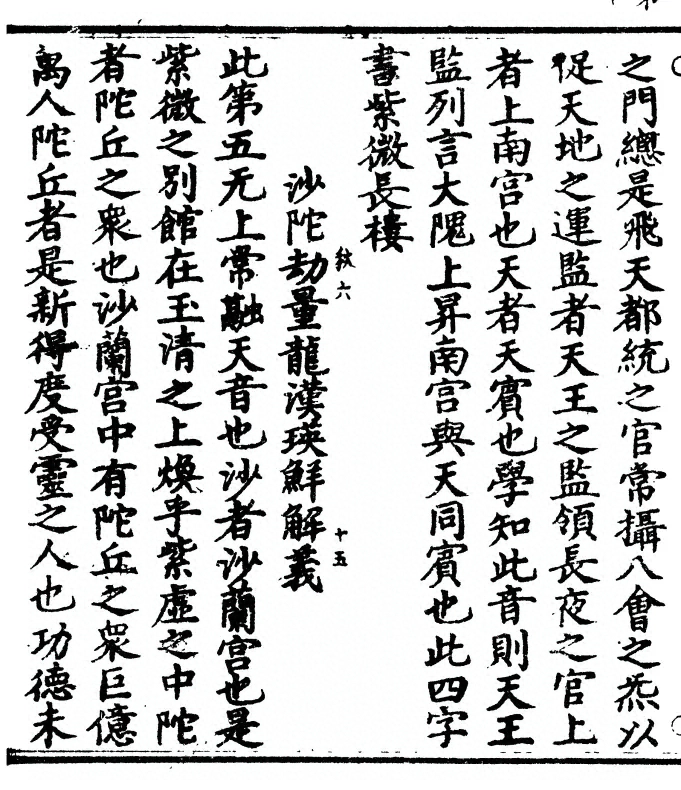 之門緫是飛天都統之官常攝八會之炁以
促天地之運監者天王之監領長夜之官上
者上南宮也天者天賓也學知此音則天王
監列言大隗上昇南宮與天同賓也此四字
書紫微長樓
沙陀劫量龍漢瑛鮮解義
紋六
十五
此第五无上常融天音也沙者沙蘭宮也是
紫微之別館在玉清之上煥乎紫虛之中陀
者陀丘之衆也沙蘭宮中有陀丘之衆巨億
萬人陀丘者是新得度受靈之人也功德未